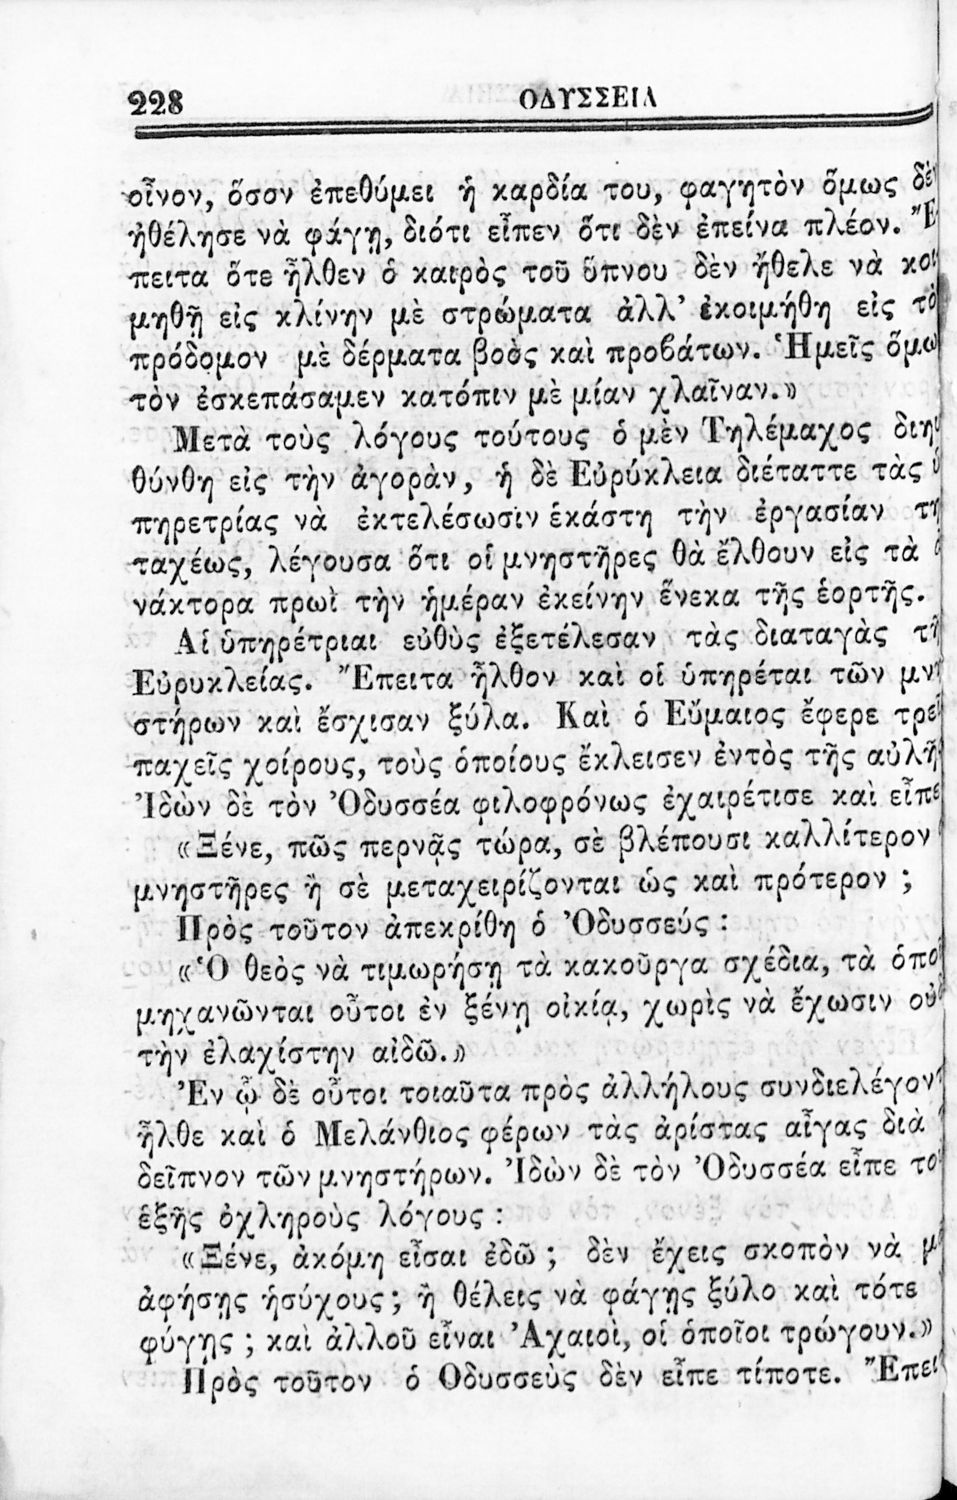 228 ΟΔΥΣΣΕΙΑ
οἶνον, ὅσον ἐπεθύμει ἡ καρδία του, φαγητὸν ὅμως δὲν
ἠθέλησε νὰ φάγῃ, διότι εἶπεν ὅτι δὲν ἐπείνα πλέον. Ἔ
πειτα ὅτε ἦλθεν ὁ καιρὸς τοῦ ὕπνου δὲν ἤθελε νὰ κοι
μηθῇ εἰς κλίνην μὲ στρώματα ἀλλ’ ἐκοιμήθη εἰς τὸ
πρόδομον μὲ δέρματα βοὸς καὶ προβάτων. Ἡμεῖς ὅμω
τὸν ἐσκεπάσαμεν κατόπιν μὲ μίαν χλαῖναν.»
Μετὰ τοὺς λόγους τούτους ὁ μὲν Τηλέμαχος διη
θύνθη εἰς τὴν ἀγορὰν, ἡ δὲ Εὐρύκλεια διέταττε τὰς
πηρετρίας νὰ ἐκτελέσωσιν ἑκάστη τὴν ἐργασίαν τη
ταχέως, λέγουσα ὅτι οἱ μνηστῆρες θὰ ἔλθουν εἰς τὰ
νάκτορα πρωῒ τὴν ἡμέραν ἐκείνην ἕνεκα τῆς ἑορτῆς.
Αἱ ὑπηρέτριαι εὐθὺς ἐξετέλεσαν τὰς διαταγὰς τῆ
Εὐρυκλείας. Ἔπειτα ἦλθον καὶ οἱ ὑπηρέται τῶν μνη
στήρων καὶ ἔσχισαν ξύλα. Καὶ ὁ Εὔμαιος ἔφερε τρεῖ
παχεῖς χοίρους, τοὺς ὁποίους ἔκλεισεν ἐντὸς τῆς αὐλῆ
Ἰδὼν δὲ τὸν Ὀδυσσέα φιλοφρόνως ἐχαιρέτισε καὶ εἶπε
«Ξένε, πῶς περνᾷς τώρα, σὲ βλέπουσι καλλίτερον
μνηστῆρες ἢ σὲ μεταχειρίζονται ὡς καὶ πρότερον ;
Πρὸς τοῦτον ἀπεκρίθη ὁ Ὀδυσσεύς :
«Ὁ θεὸς νὰ τιμωρήσῃ τὰ κακοῦργα σχέδια, τὰ ὁπο
μηχανῶνται οὗτοι ἐν ξένῃ οἰκίᾳ, χωρὶς νὰ ἔχωσιν οὐ
τὴν ἐλαχίστην αἰδῶ.»
Ἐν ᾧ δὲ οὗτοι τοιαῦτα πρὸς ἀλλήλους συνδιελέγον
ἦλθε καὶ ὁ Μελάνθιος φέρων τὰς ἀρίστας αἶγας διὰ
δεῖπνον τῶν μνηστήρων. Ἰδὼν δὲ τὸν Ὀδυσσέα εἶπε το
ἑξῆς ὀχληροὺς λόγους :
«Ξένε, ἀκόμη εἶσαι ἐδῶ ; δὲν ἔχεις σκοπὸν νὰ μ
ἀφήσῃς ἡσύχους; ἢ θέλεις νὰ φάγῃς ξύλο καὶ τότε
φύγῃς ; καὶ ἀλλοῦ εἶναι Ἀχαιοὶ, οἱ ὁποῖοι τρώγουν.»
Πρὸς τοῦτον ὁ Ὀδυσσεὺς δὲν εἶπε τίποτε. Ἔπει